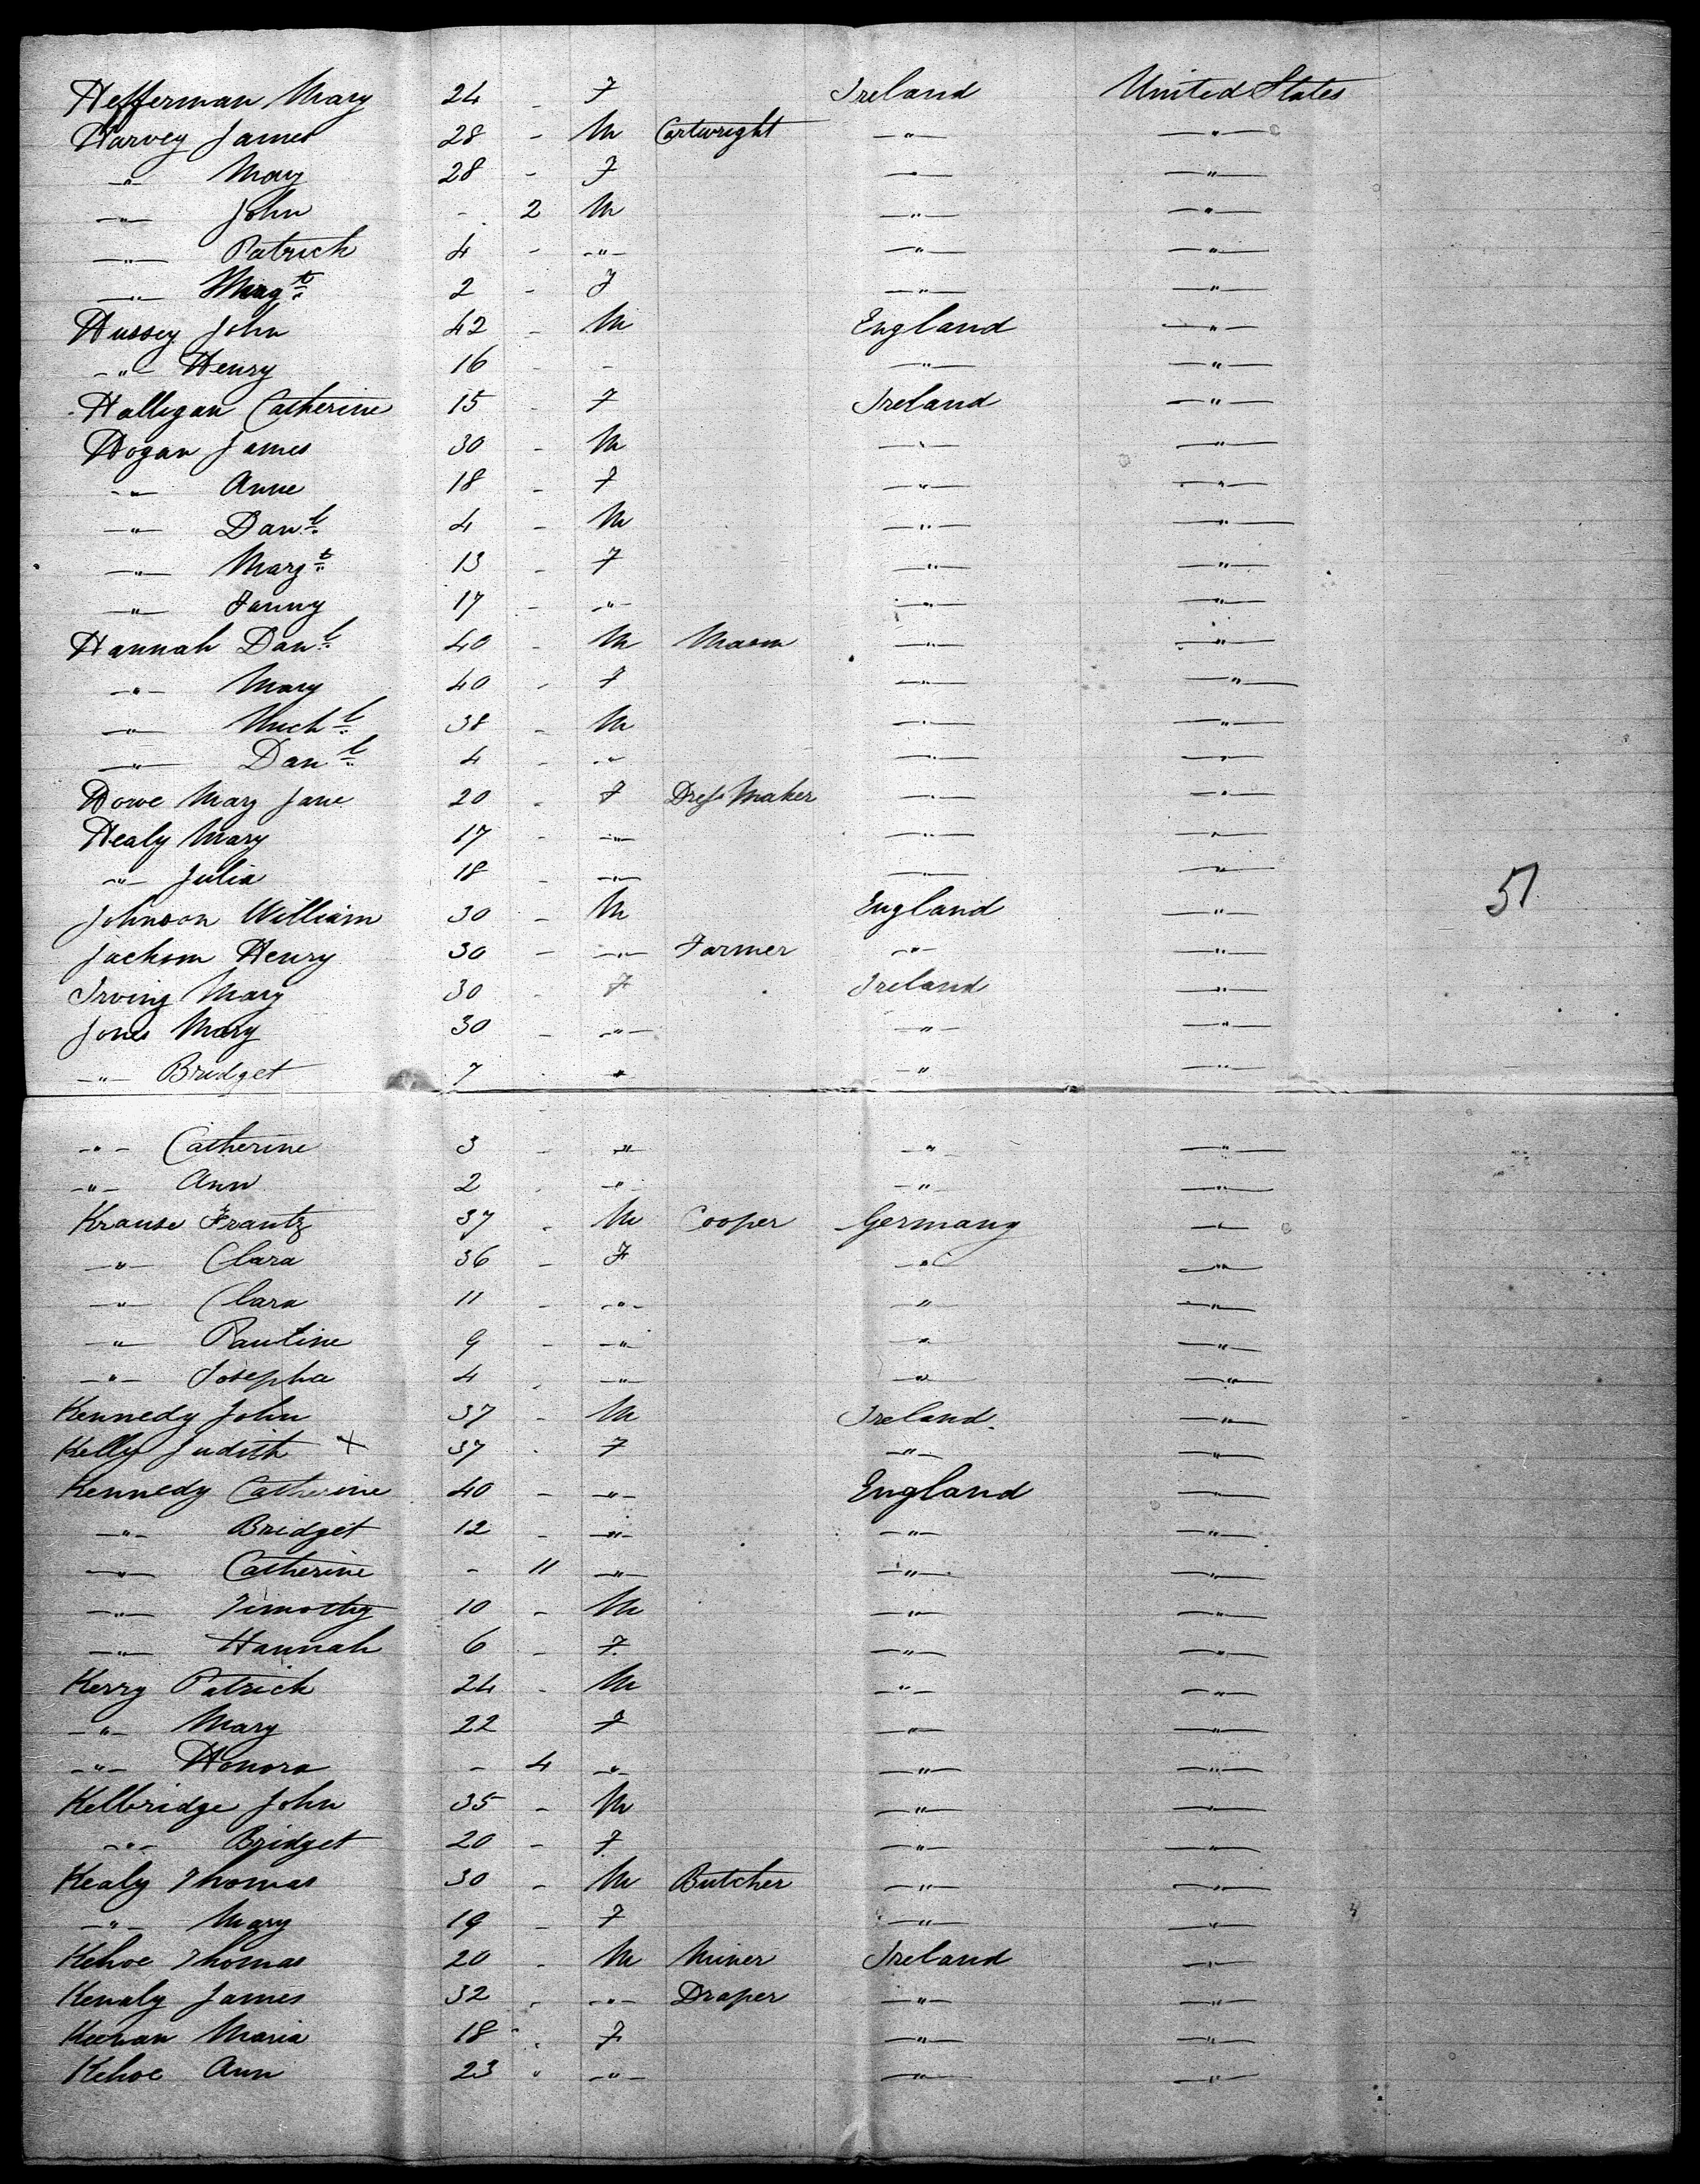 Hefferman Mary 24 - F Ireland United States
Harvey James 28 - M Cartwright -"- -"-
-"- Mary 28 - F -"- -"-
-"- John - 2 M -"- -"-
-"- Patrick 4 - -"- -"- -"-
-"- Margt 2 - F -"- -"-
Hussey John 42 - M England -"-
-"- Henry 16 - - -"- -"-
Halligan Catherine 15 - F Ireland -"-
Hogan James 30 - M -"- -"-
-"- Anne 18 - F -"- -"-
-"- Danl 4 - M -"- -"-
-"- Margt 13 - F -"- -"-
-"- Fanny 17 - -"- -"- -"-
Hannah Danl 40 - M Mason -"- -"-
-"- Mary 40 - F -"- -"-
-"- Michl 38 - M -"- -"-
-"- Danl 4 - -"- -"- -"-
Howe Mary Jane 20 - F Dress Maker -"- -"-
Healy Mary 17 - -"- -"- -"-
-"- Julia 18 - -"- -"- -"-
51
Johnson William 30 - M England -"-
Jackson Henry 30 - -"- Farmer -"- -"-
Irving Mary 30 - F Ireland -"-
Jones Mary 30 - -"- -"- -"-
-"- Bridget 7 - " -"- -"-
-"- Catherine 3 - -"- -"- -"-
-"- Ann 2 - -"- -"- -"-
Krause Frantz 37 - M Cooper Germany -"-
-"- Clara 36 - F -"- -"-
-"- Clara 11 - -"- " -"-
-"- Pauline 9 - -"- -"- -"-
-"- Josepha 4 - -"- -"- -"-
Kennedy John 37 - M Ireland -"-
Kelly Judith x 37 - F -"- -"-
Kennedy Catherine 40 - -"- England -"-
-"- Bridget 12 - -"- -"- -"-
-"- Catherine - 11 -"- -"- -"-
-"- Timothy 10 - M -"- -"-
-"- Hannah 6 - F -"- -"-
Kerry Patrick 24 - M -"- -"-
-"- Mary 22 F -"- -"-
-"- Honora - 4 -"- -"- -"-
Kelbridge John 35 - M -"- -"-
-"- Bridget 20 - F -"- -"-
Kealy Thomas 30 - M Butcher -"- -"-
-"- Mary 19 - F -"- -"-
Kehoe Thomas 20 - M Miner Ireland -"-
Kenaly James 32 - -"- Draper -"- -"-
Keenan Maria 18 - F -"- -"-
Kehoe Ann 23 " -"- -"- -"-